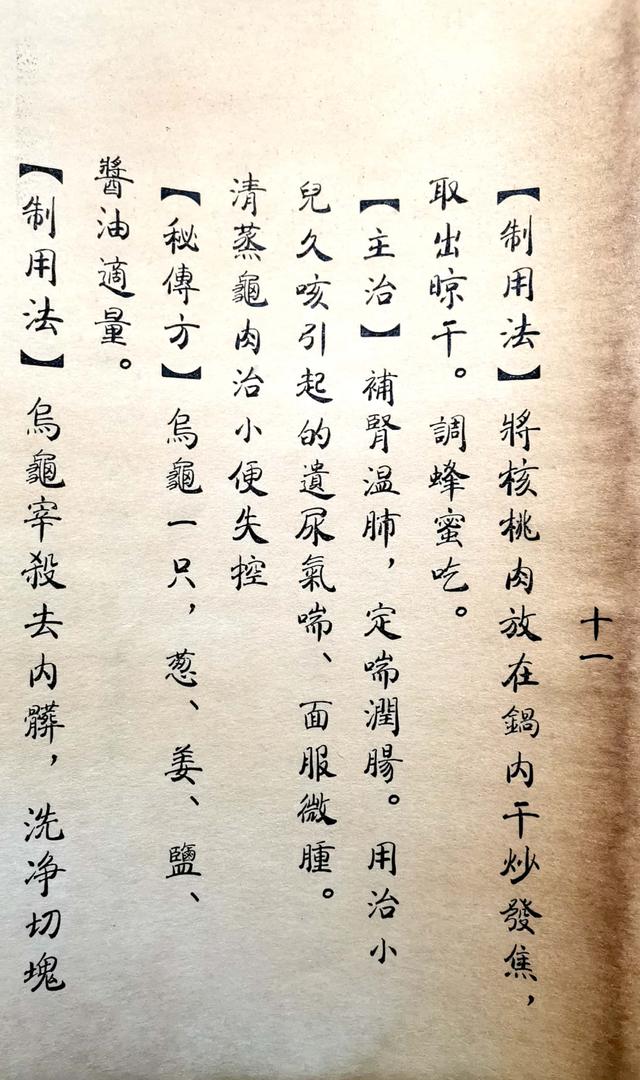 十一
【制用法】將核桃肉放在鍋內干炒發焦，
取出晾干。調蜂蜜吃。
【主治】補腎温肺，定喘潤腸。用治小
兒久咳引起的遺尿氣喘、面服微腫。
清蒸龜肉治小便失控
【秘傳方】烏龜一只，葱、姜、鹽、
醬油適量。
【制用法】烏龜宰殺去内髒，洗净切塊